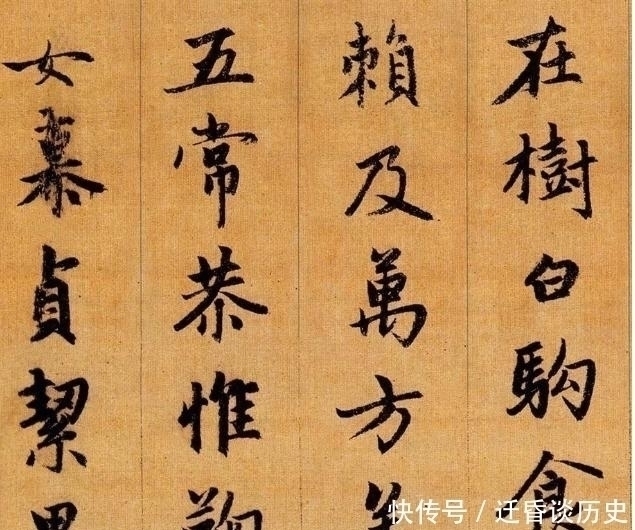 在樹白駒食
賴及萬方
五常恭惟鞠
女慕貞絜男
快传号 / 迁昏谈历史